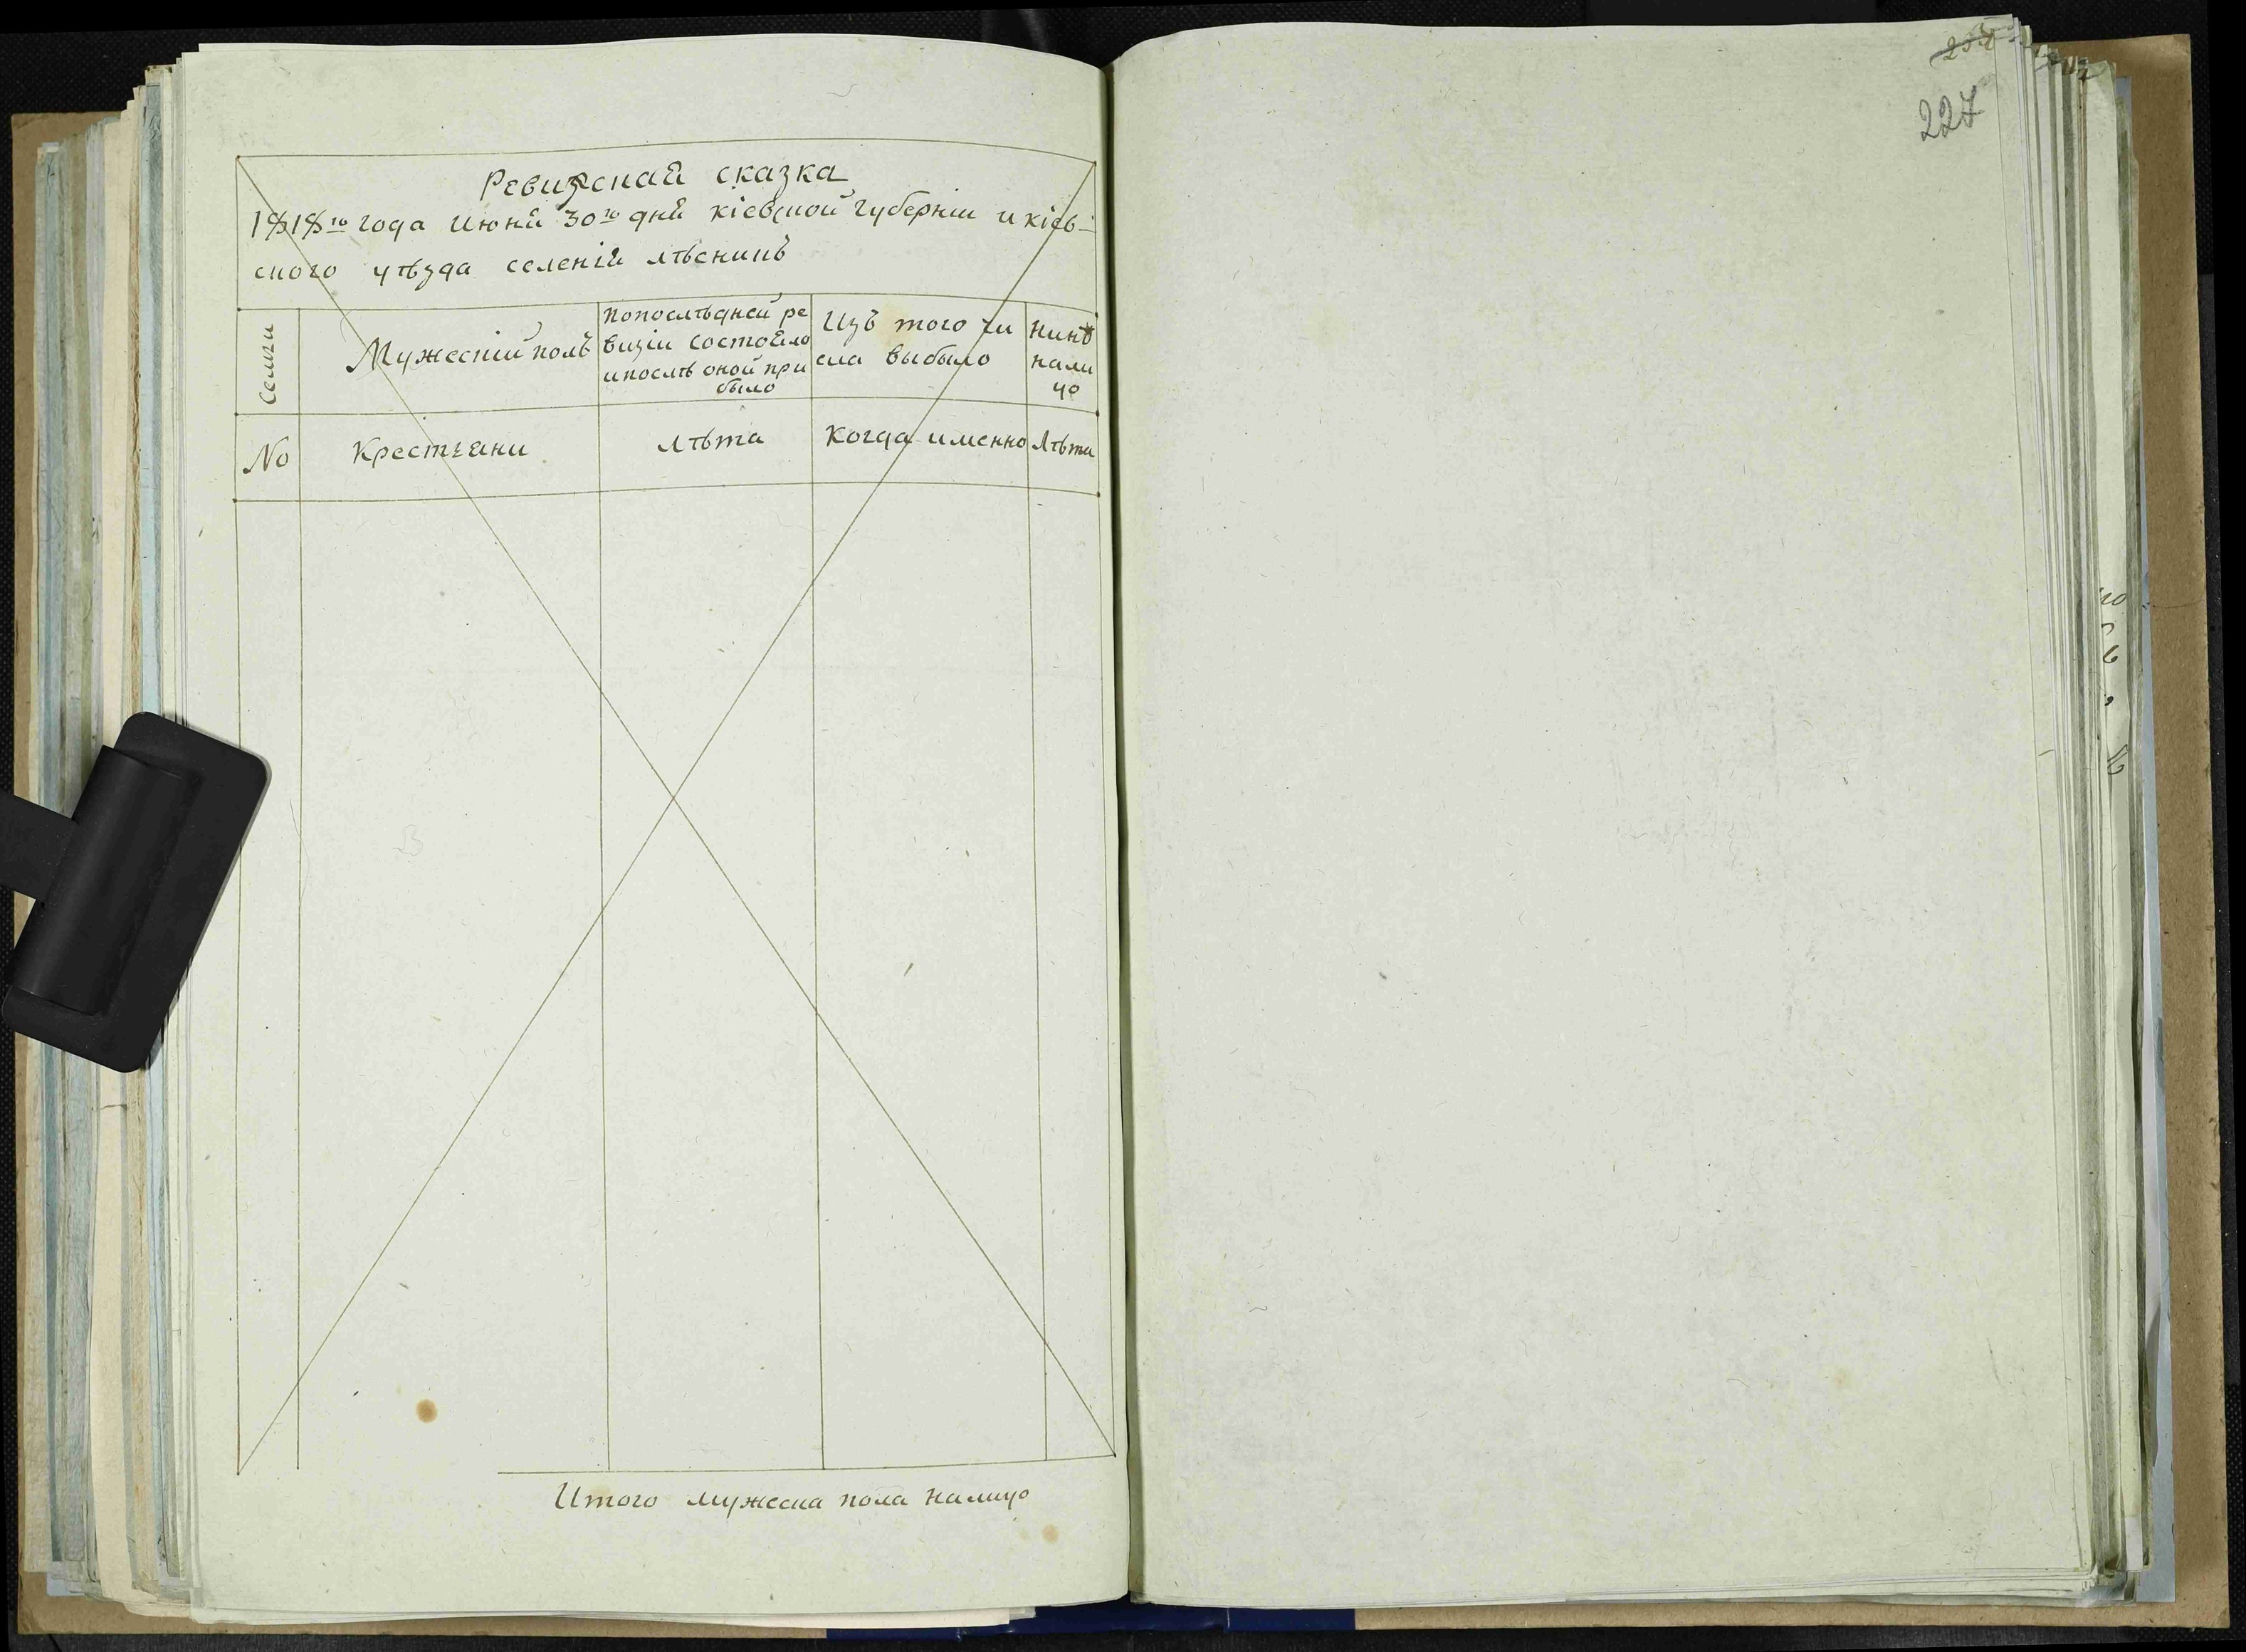 Ревизская сказка
1818го года Июня 30го дня кіевской губерніи и кіев=
ского уѣзда селенія лѣсники
Семьи
Мужескій полъ
Попослѣдней ре
визіи состояло
ипослѣ оной при
было
Изъ того чи
сла выбыло
Нинѣ
нали
цо
No
Крестьяни
лѣта
Когда именно
Лѣта
Итого мужеска пола налицо
227